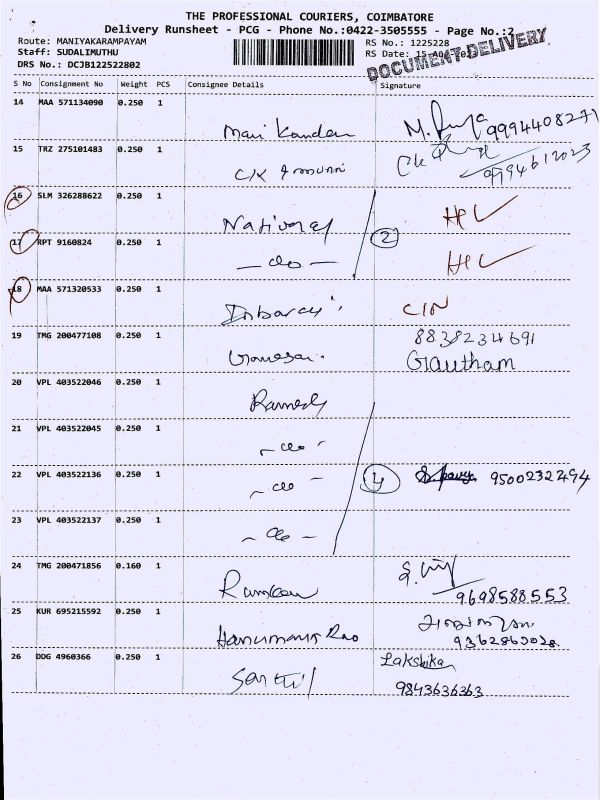 THE PROFESSIONAL COURIERS, COIMBATORE
Delivery Runsheet - PCG - Phone No.:0422-3505555 - Page No.:2
Route: MANIYAKARAMPAYAM
RS No.: 1225228
Staff: SUDALIMUTHU
RS Date: 15-Aug-2023
DRS No.: DCJB122522802
DOCUMENT DELIVERY
S No Consignment No Weight PCS Consignee Details Signature
14 MAA 571134090 0.250 1
Mani Kandan 9994408271
15 TRZ 275101483 0.250 1
C/K 9794612023
16 SLM 326288622 0.250 1
Nativoraj
17 RPT 9160824 0.250 1 2
- do -
18 MAA 571320533 0.250 1
Inbaraj CIN
19 TMG 200477108 0.250 1 8838234691
Ganesan. Gautham
20 VPL 403522046 0.250 1
Ramesh
21 VPL 403522045 0.250 1
- do -
22 VPL 403522136 0.250 1 4 9500232494
- do -
23 VPL 403522137 0.250 1
- do -
24 TMG 200471856 0.160 1
9698588553
25 KUR 695215592 0.250 1
Hanumana Rao
26 DDG 4960366 0.250 1 Lakshika
Senthil 9843636363